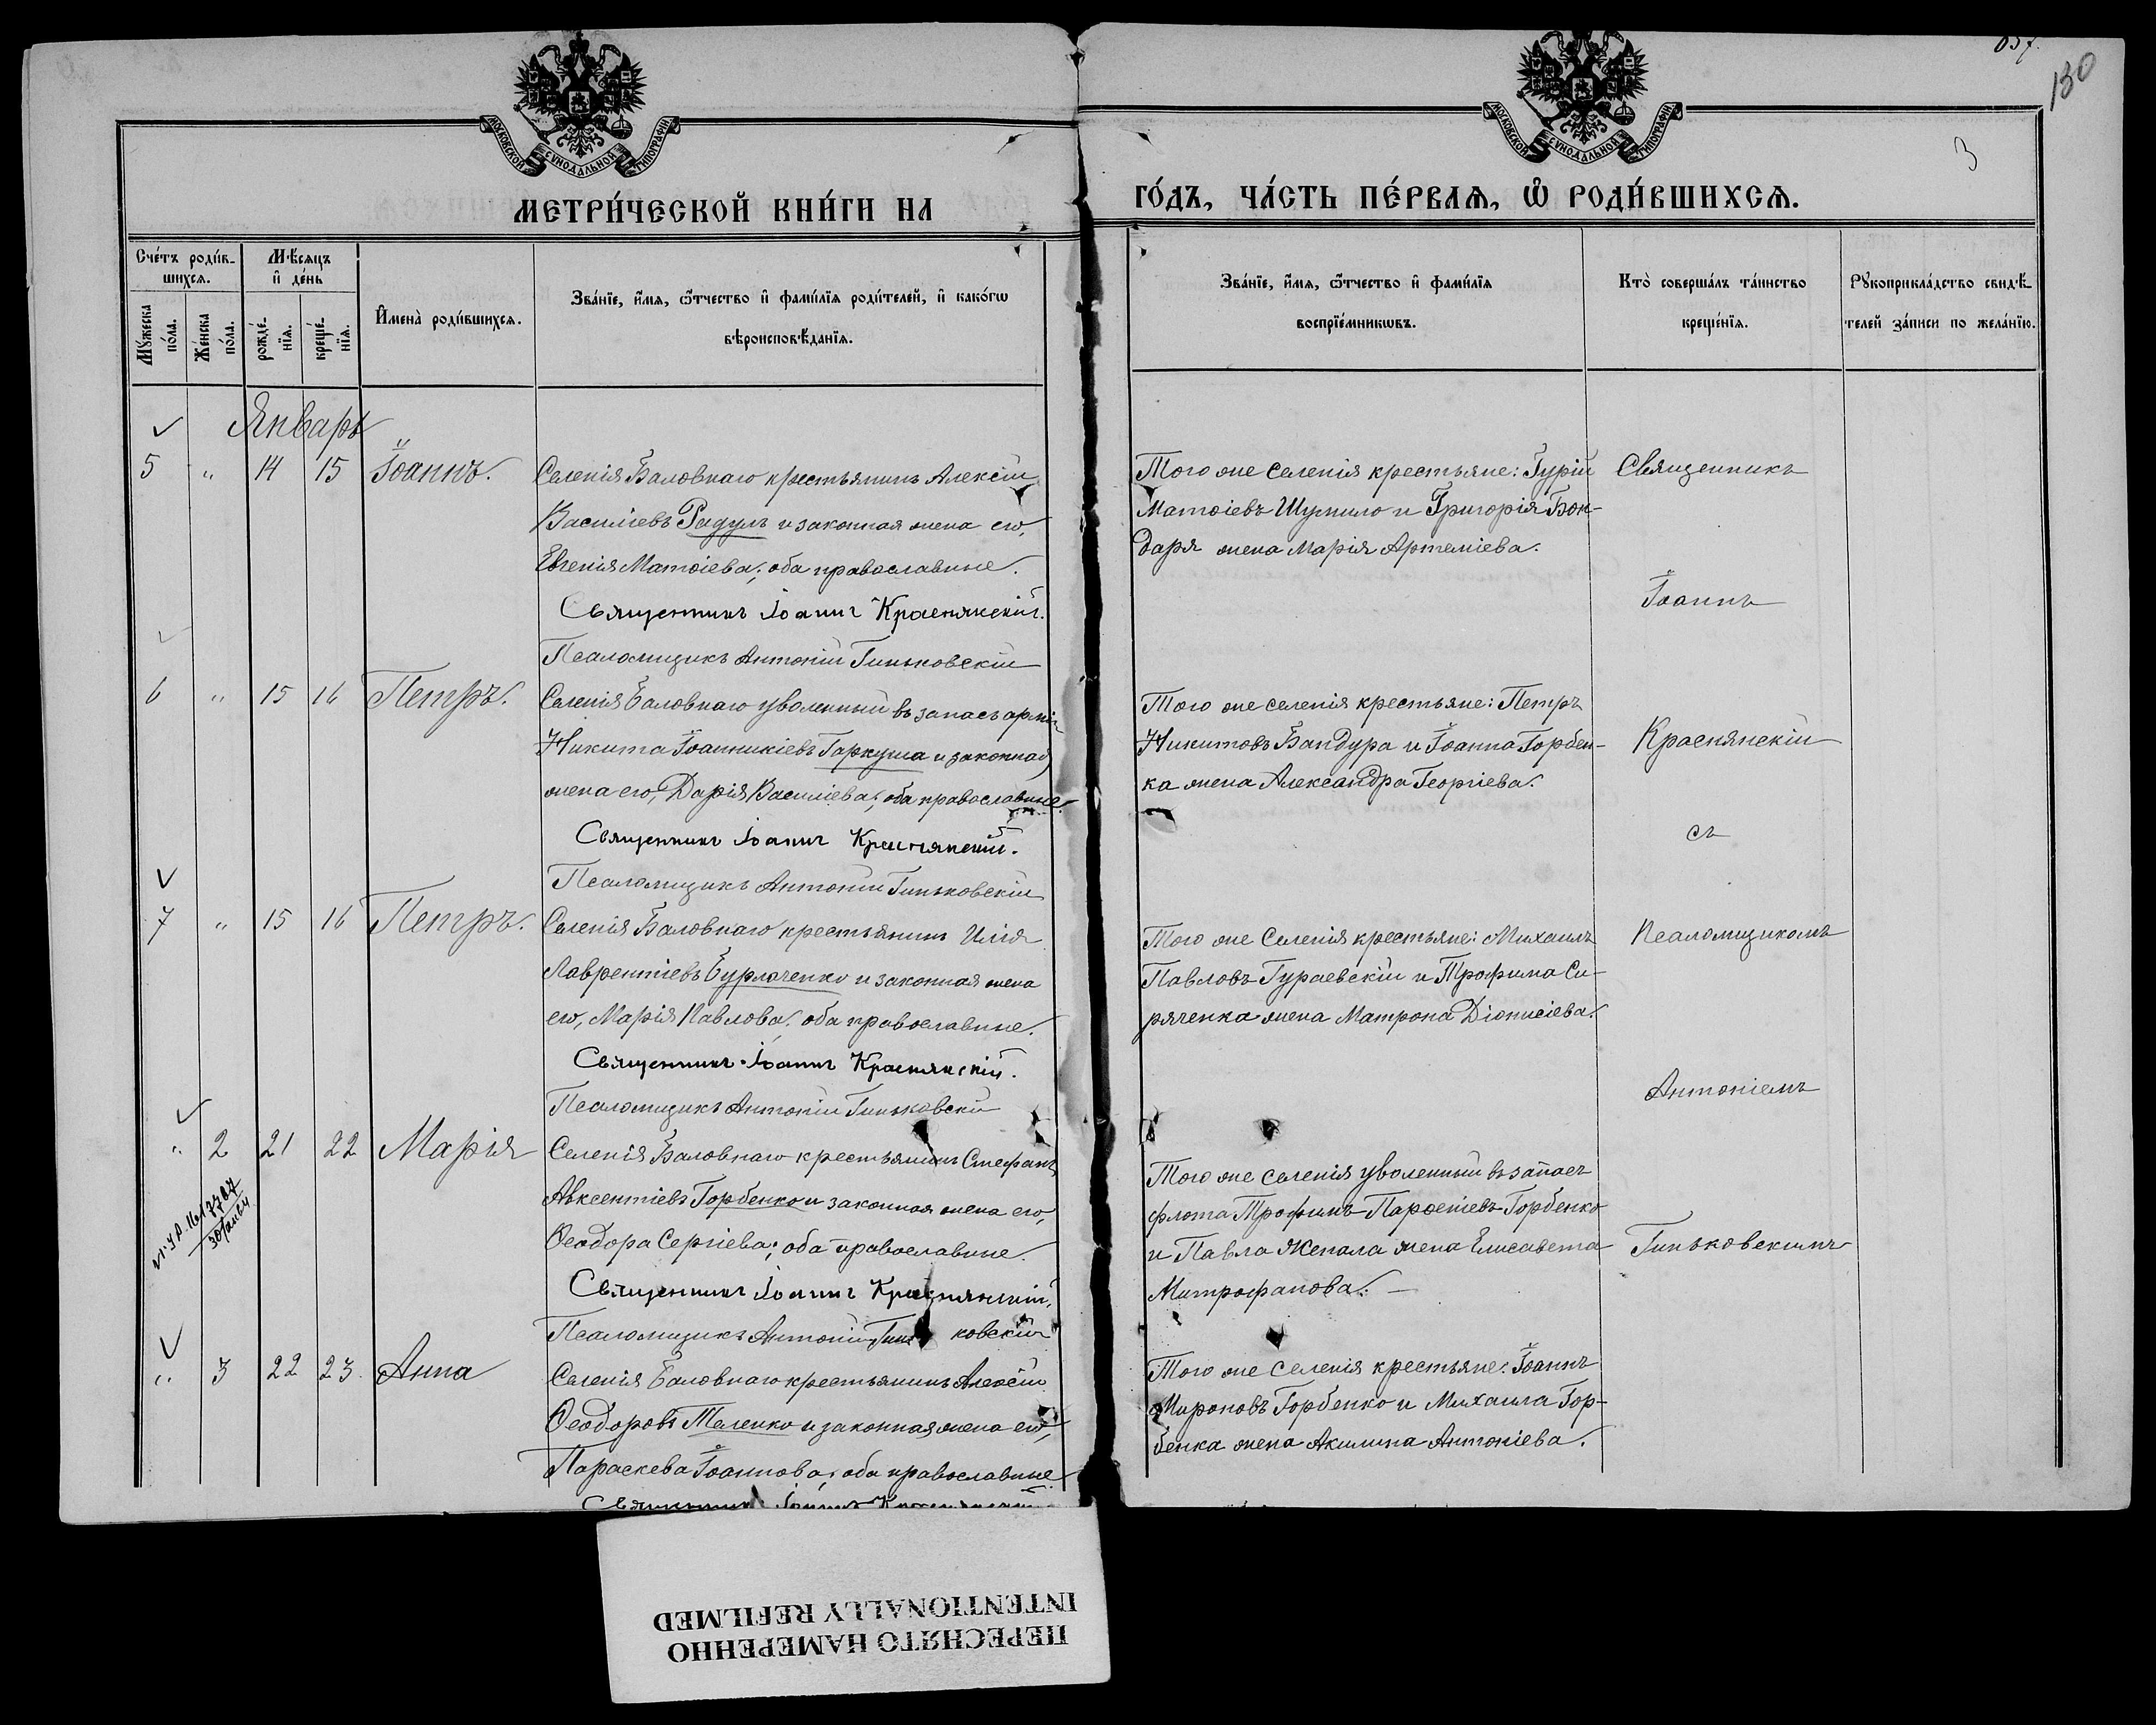 057.
130
3
МОСКОВСКОЙ СѴНОДАЛЬНОЙ ТИПОГРАФІИ
МОСКОВСКОЙ СѴНОДАЛЬНОЙ ТИПОГРАФІИ
МЕТРИ́ЧЕСКОЙ КНИ́ГИ НА
ГО́ДЪ, ЧА́СТЬ ПЕ́РВАѦ, Ѽ РОДИ́ВШИХСѦ.
Сче́тъ роди́в-
шихсѧ.
Мꙋ́жеска
по́ла.
Же́нска
по́ла.
Мѣ́сѧцъ
и҆ де́нь
рожде́-
нїѧ.
креще́-
нїѧ.
И҆мена̀ роди́вшихсѧ.
Зва́нїе, и҆́мѧ, ѻ҆́тчество и҆ фами́лїѧ роди́телей, и҆ како́гѡ
вѣроисповѣ́данїѧ.
Зва́нїе, и҆́мѧ, ѻ҆́тчество и҆ фами́лїѧ
воспрїе́мникѡвъ.
Кто̀ соверша́лъ та́инство
креще́нїѧ.
Рꙋкоприкла́дство свидѣ́-
телей за́писи по жела́нїю.
Январь
5 " 14 15 Іоаннъ.
Селенія Баловнаго крестьянинъ Алексій
Василіевъ Радулъ и законная жена его,
Евгенія Матѳіева; оба православные.
Священникъ Іоаннъ Краснянскій.
Псаломщикъ Антоній Гиньковскій
Того же селенія крестьяне: Гурій
Матѳіевъ Шумило и Григорія Бон-
даря жена Марія Артеміева.
Священникъ
Іоаннъ
6 " 15 16 Петръ.
Селенія Баловнаго уволенный въ запасъ арміи
Никита Іоанникіевъ Гаркуша и законная
жена его, Дарія Василіева; оба православные.
Священникъ Іоаннъ Краснянскій.
Псаломщикъ Антоній Гиньковскій
Того же селенія крестьяне: Петръ
Никитовъ Бандура и Іоанна Горбен-
ка жена Александра Георгіева.
Краснянскій
съ
7 " 15 16 Петръ.
Селенія Баловнаго крестьянинъ Илія
Лаврентіевъ Бурлаченко и законная жена
его, Марія Павлова; оба православные.
Священникъ Іоаннъ Краснянскій.
Псаломщикъ Антоній Гиньковскій
Того же селенія крестьяне: Михаилъ
Павловъ Гураевскій и Трофима Си-
ряченка жена Матрона Діонисіева.
Псаломщикомъ
Антоніемъ
" 2 21 22 Марія
Селенія Баловнаго крестьянинъ Стефанъ
Авксентіевъ Горбенко и законная жена его,
Ѳеодора Сергіева; оба православные.
Священникъ Іоаннъ Краснянскій.
Псаломщикъ Антоній Гиньковскій
Того же селенія уволенный въ запасъ
флота Трофимъ Парѳеніевъ Горбенко
и Павла Жепала жена Елисавета
Митрофанова. —
Гиньковскимъ
" 3 22 23 Анна
Селенія Баловнаго крестьянинъ Алексій
Ѳеодоровъ Таленко и законная жена его,
Параскева Іоаннова; оба православные
Священникъ Іоаннъ Краснянскій
Того же селенія крестьяне: Іоаннъ
Мироновъ Горбенко и Михаила Гор-
бенка жена Акилина Антоніева.
ПЕРЕСНЯТО НАМЕРЕННО
INTENTIONALLY REFILMED